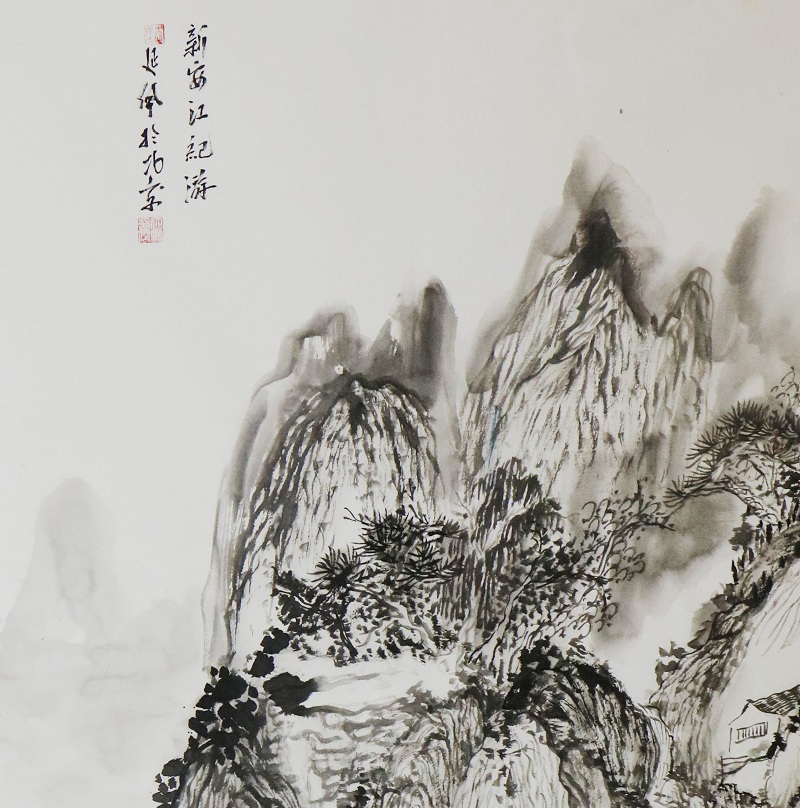 新安江紀游
延風於北京